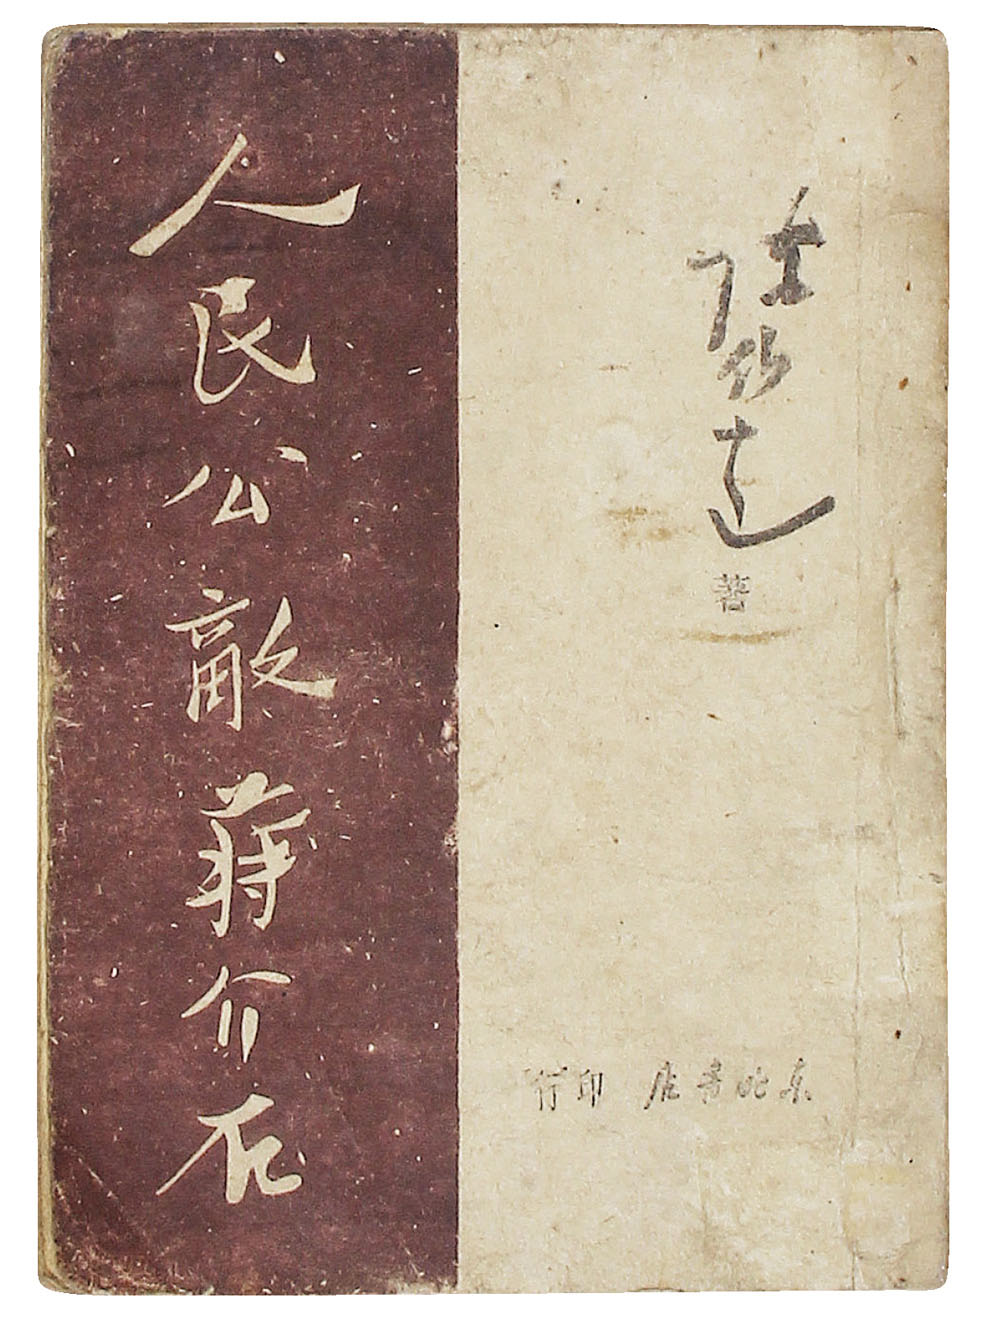 陳伯達 著
東北書店 印行
人民公敵蔣介石